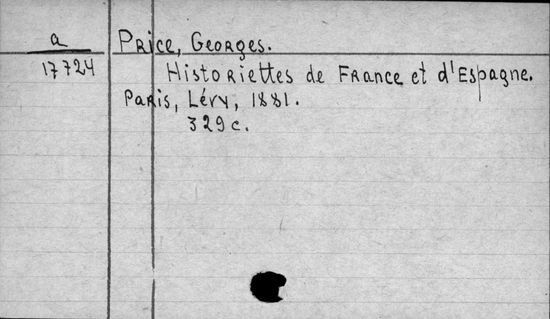 a
17724
Price, Georges.
Historiettes de France et d'Espagne.
Paris, Lévy, 1881.
329 c.